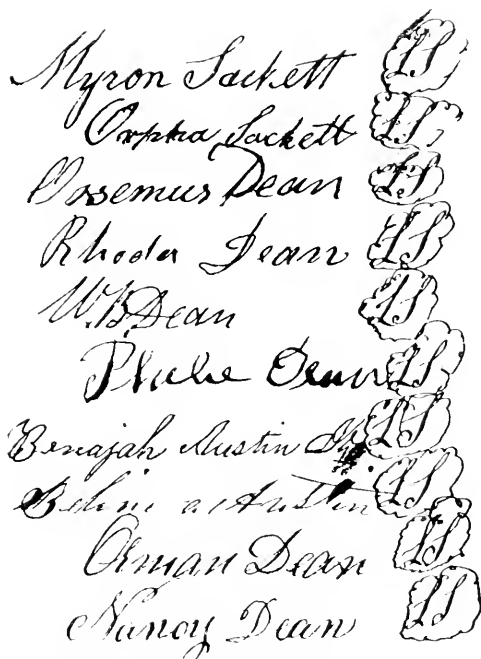 Myron Sackett LS
Orpha Sackett LS
Onsemus Dean LS
Rhoda Dean LS
W.B. Dean LS
Phebe Dean LS
Benajah Austin Jr. LS
Austin LS
Orman Dean LS
Nancy Dean LS